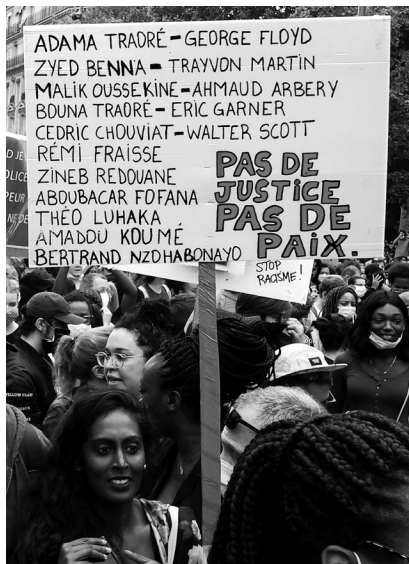 ADAMA TRAORÉ-GEORGE FLOYD
ZYED BENNA-TRAYVON MARTIN
MALIK OUSSEKINE-AHMAUD ARBERY
BOUNA TRAORÉ-ERIC GARNER
CEDRIC CHOUVIAT-WALTER SCOTT
RÉMI FRAISSE
ZINEB REDOUANE
ABOUBACAR FOFANA
THÉO LUHAKA
AMADOU KOUMÉ
BERTRAND NZOHABONAYO
PAS DE
JUSTICE
PAS DE
PAIX.
STOP
RACISME!